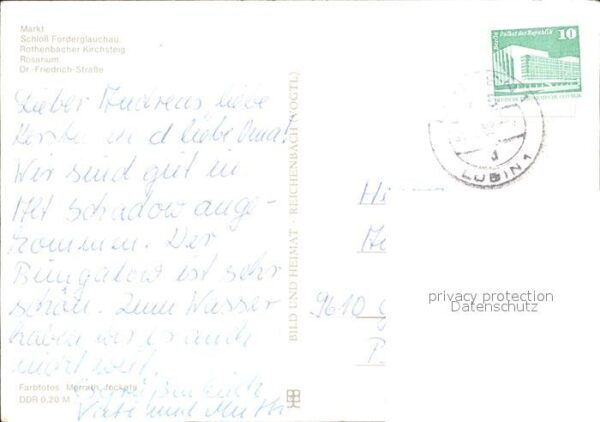 Markt
Schloß Forderglauchau
Rothenbacher Kirchsteig
Rosarium
Dr.-Friedrich-Straße
Lieber Andreas liebe
und liebe Oma!
Wir sind gut in
Alt Schadow ange-
kommen. Der
Bungalow ist sehr
schön. Zum Wasser
haben wir es auch
nicht weit.
Es grüßen Euch
Vati und Mutti
Farbfotos
DDR 0,20 M
BILD UND HEIMAT · REICHENBACH (VOGTL)
Berlin Palast der Republik
10
LÜBBEN 1
9610
privacy protection
Datenschutz